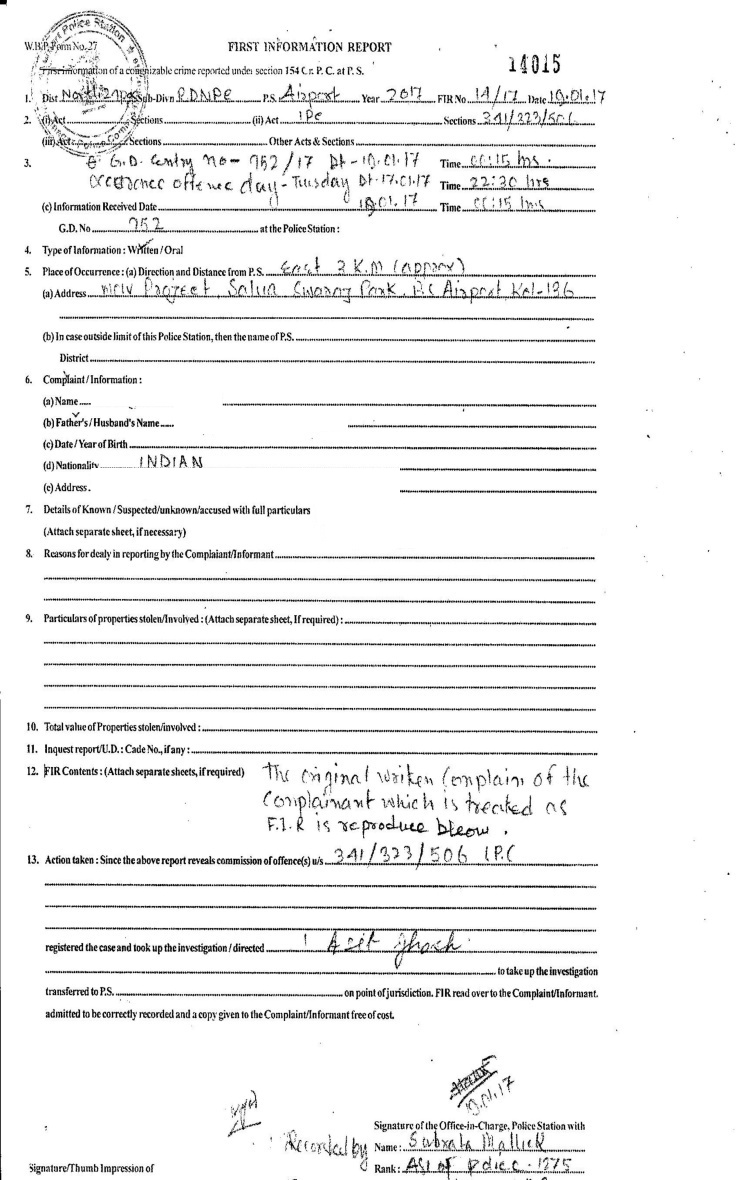 W.B.P. Form No. 27
FIRST INFORMATION REPORT
14015
First information of a cognizable crime reported under section 154 Cr. P. C. at P. S.
1. Dist North 24 Pgs Sub-Divn P.S. Airport Year 2017 FIR No 14/17 Date .01.17
2. (i) Act Sections (ii) Act IPC Sections 341/323/506
(iii) Act Sections Other Acts & Sections
3. G.D. entry no- 952/17 Dt- .01.17 Time 00:15 hrs.
offence day - Tuesday Dt. 17.01.17 Time 22:30 hrs
(c) Information Received Date .01.17 Time 00:15 hrs
G.D. No 952 at the Police Station :
4. Type of Information : Written / Oral
5. Place of Occurrence : (a) Direction and Distance from P.S. East 3 K.M (approx)
(a) Address New Project Salua Park, P.S Airport, Kol-136
(b) In case outside limit of this Police Station, then the name of P.S.
District
6. Complaint / Information :
(a) Name
(b) Father's / Husband's Name
(c) Date / Year of Birth
(d) Nationality INDIAN
(e) Address .
7. Details of Known / Suspected/unknown/accused with full particulars
(Attach separate sheet, if necessary)
8. Reasons for dealy in reporting by the Complaiant/Informant
9. Particulars of properties stolen/Involved : (Attach separate sheet, If required) :
10. Total value of Properties stolen/involved :
11. Inquest report/U.D. : Cade No., if any :
12. FIR Contents : (Attach separate sheets, if required) The original wriken Complain of the
Complainant which is treated as
F.I.R is reproduce bleow.
13. Action taken : Since the above report reveals commission of offence(s) u/s 341/323/506 I.P.C
registered the case and took up the investigation / directed Asit Ghosh
to take up the investigation
transferred to P.S. on point of jurisdiction. FIR read over to the Complaint/Informant.
admitted to be correctly recorded and a copy given to the Complaint/Informant free of cost.
.01.17
Signature of the Office-in-Charge, Police Station with
Recorded by Name : Subrata Mallick
Signature/Thumb Impression of Rank : ASI of Police